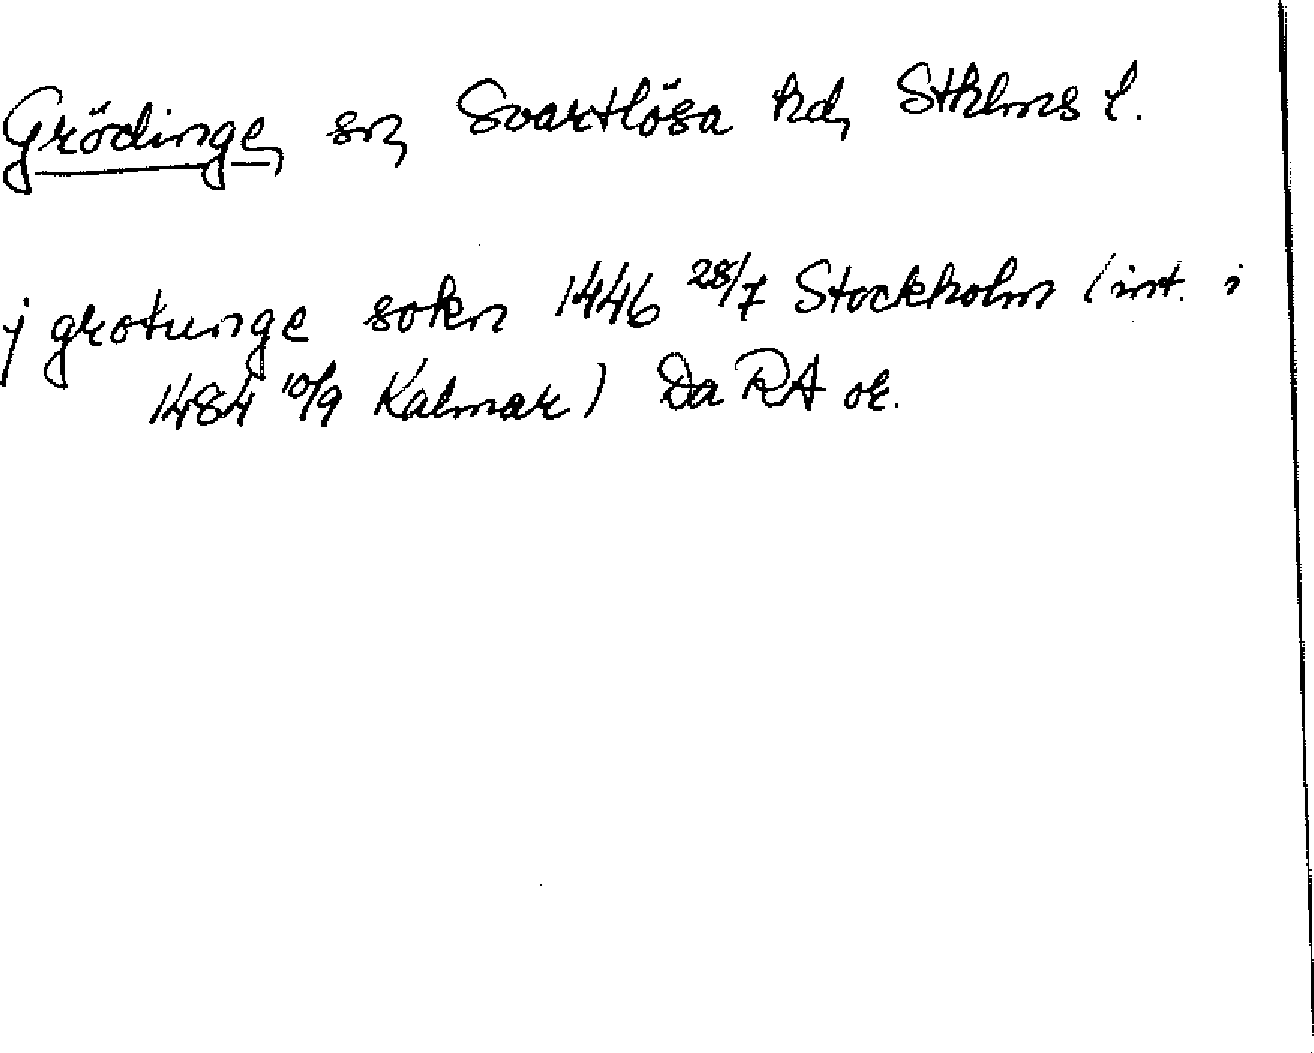 Grödinge, sn, Svartlösa hd, Sthlms l.
j grotunge sokn 1446 28/7 Stockholm (int. i
1484 10/9 Kalmar) Da RA or.